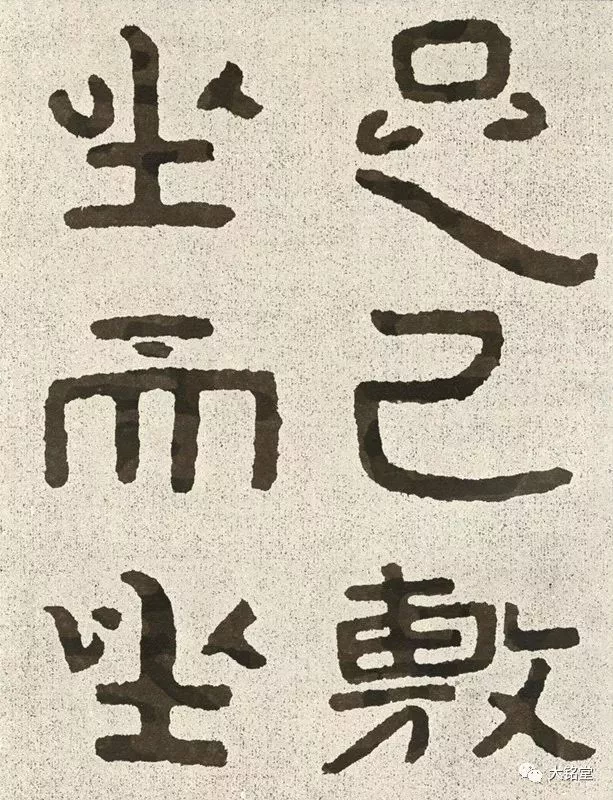 足已敷
坐而坐
大铭堂